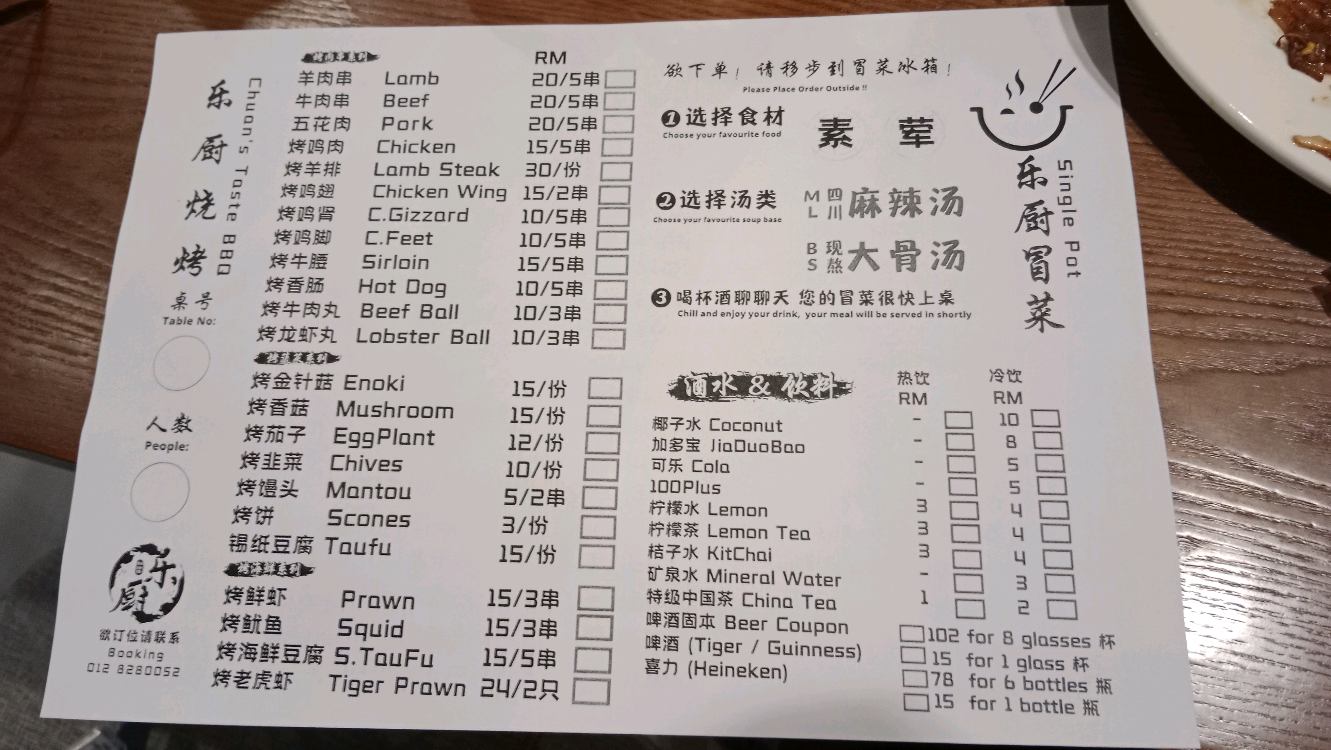 乐厨烧烤
Chuan's Taste BBQ
桌号
Table No:
人数
People:
乐厨
欲订位请联系
Booking
012 8280052
烤肉串系列 RM
羊肉串 Lamb 20/5串
牛肉串 Beef 20/5串
五花肉 Pork 20/5串
烤鸡肉 Chicken 15/5串
烤羊排 Lamb Steak 30/份
烤鸡翅 Chicken Wing 15/2串
烤鸡肾 C.Gizzard 10/5串
烤鸡脚 C.Feet 10/5串
烤牛腰 Sirloin 15/5串
烤香肠 Hot Dog 10/5串
烤牛肉丸 Beef Ball 10/3串
烤龙虾丸 Lobster Ball 10/3串
烤蔬菜系列
烤金针菇 Enoki 15/份
烤香菇 Mushroom 15/份
烤茄子 EggPlant 12/份
烤韭菜 Chives 10/份
烤馒头 Mantou 5/2串
烤饼 Scones 3/份
锡纸豆腐 Taufu 15/份
烤海鲜系列
烤鲜虾 Prawn 15/3串
烤鱿鱼 Squid 15/3串
烤海鲜豆腐 S.TauFu 15/5串
烤老虎虾 Tiger Prawn 24/2只
欲下单！请移步到冒菜冰箱！
Please Place Order Outside !!
❶选择食材 素 荤
Choose your favourite food
❷选择汤类 ML 四川 麻辣汤
Choose your favourite soup base
BS 现熬 大骨汤
❸喝杯酒聊聊天 您的冒菜很快上桌
Chill and enjoy your drink, your meal will be served in shortly
乐厨冒菜
Single Pot
酒水 & 饮料 热饮 冷饮
RM RM
椰子水 Coconut - 10
加多宝 JiaDuoBao - 8
可乐 Cola - 5
100Plus - 5
柠檬水 Lemon 3 4
柠檬茶 Lemon Tea 3 4
桔子水 KitChai 3 4
矿泉水 Mineral Water - 3
特级中国茶 China Tea 1 2
啤酒固本 Beer Coupon 102 for 8 glasses 杯
啤酒 (Tiger / Guinness) 15 for 1 glass 杯
喜力 (Heineken) 78 for 6 bottles 瓶
15 for 1 bottle 瓶